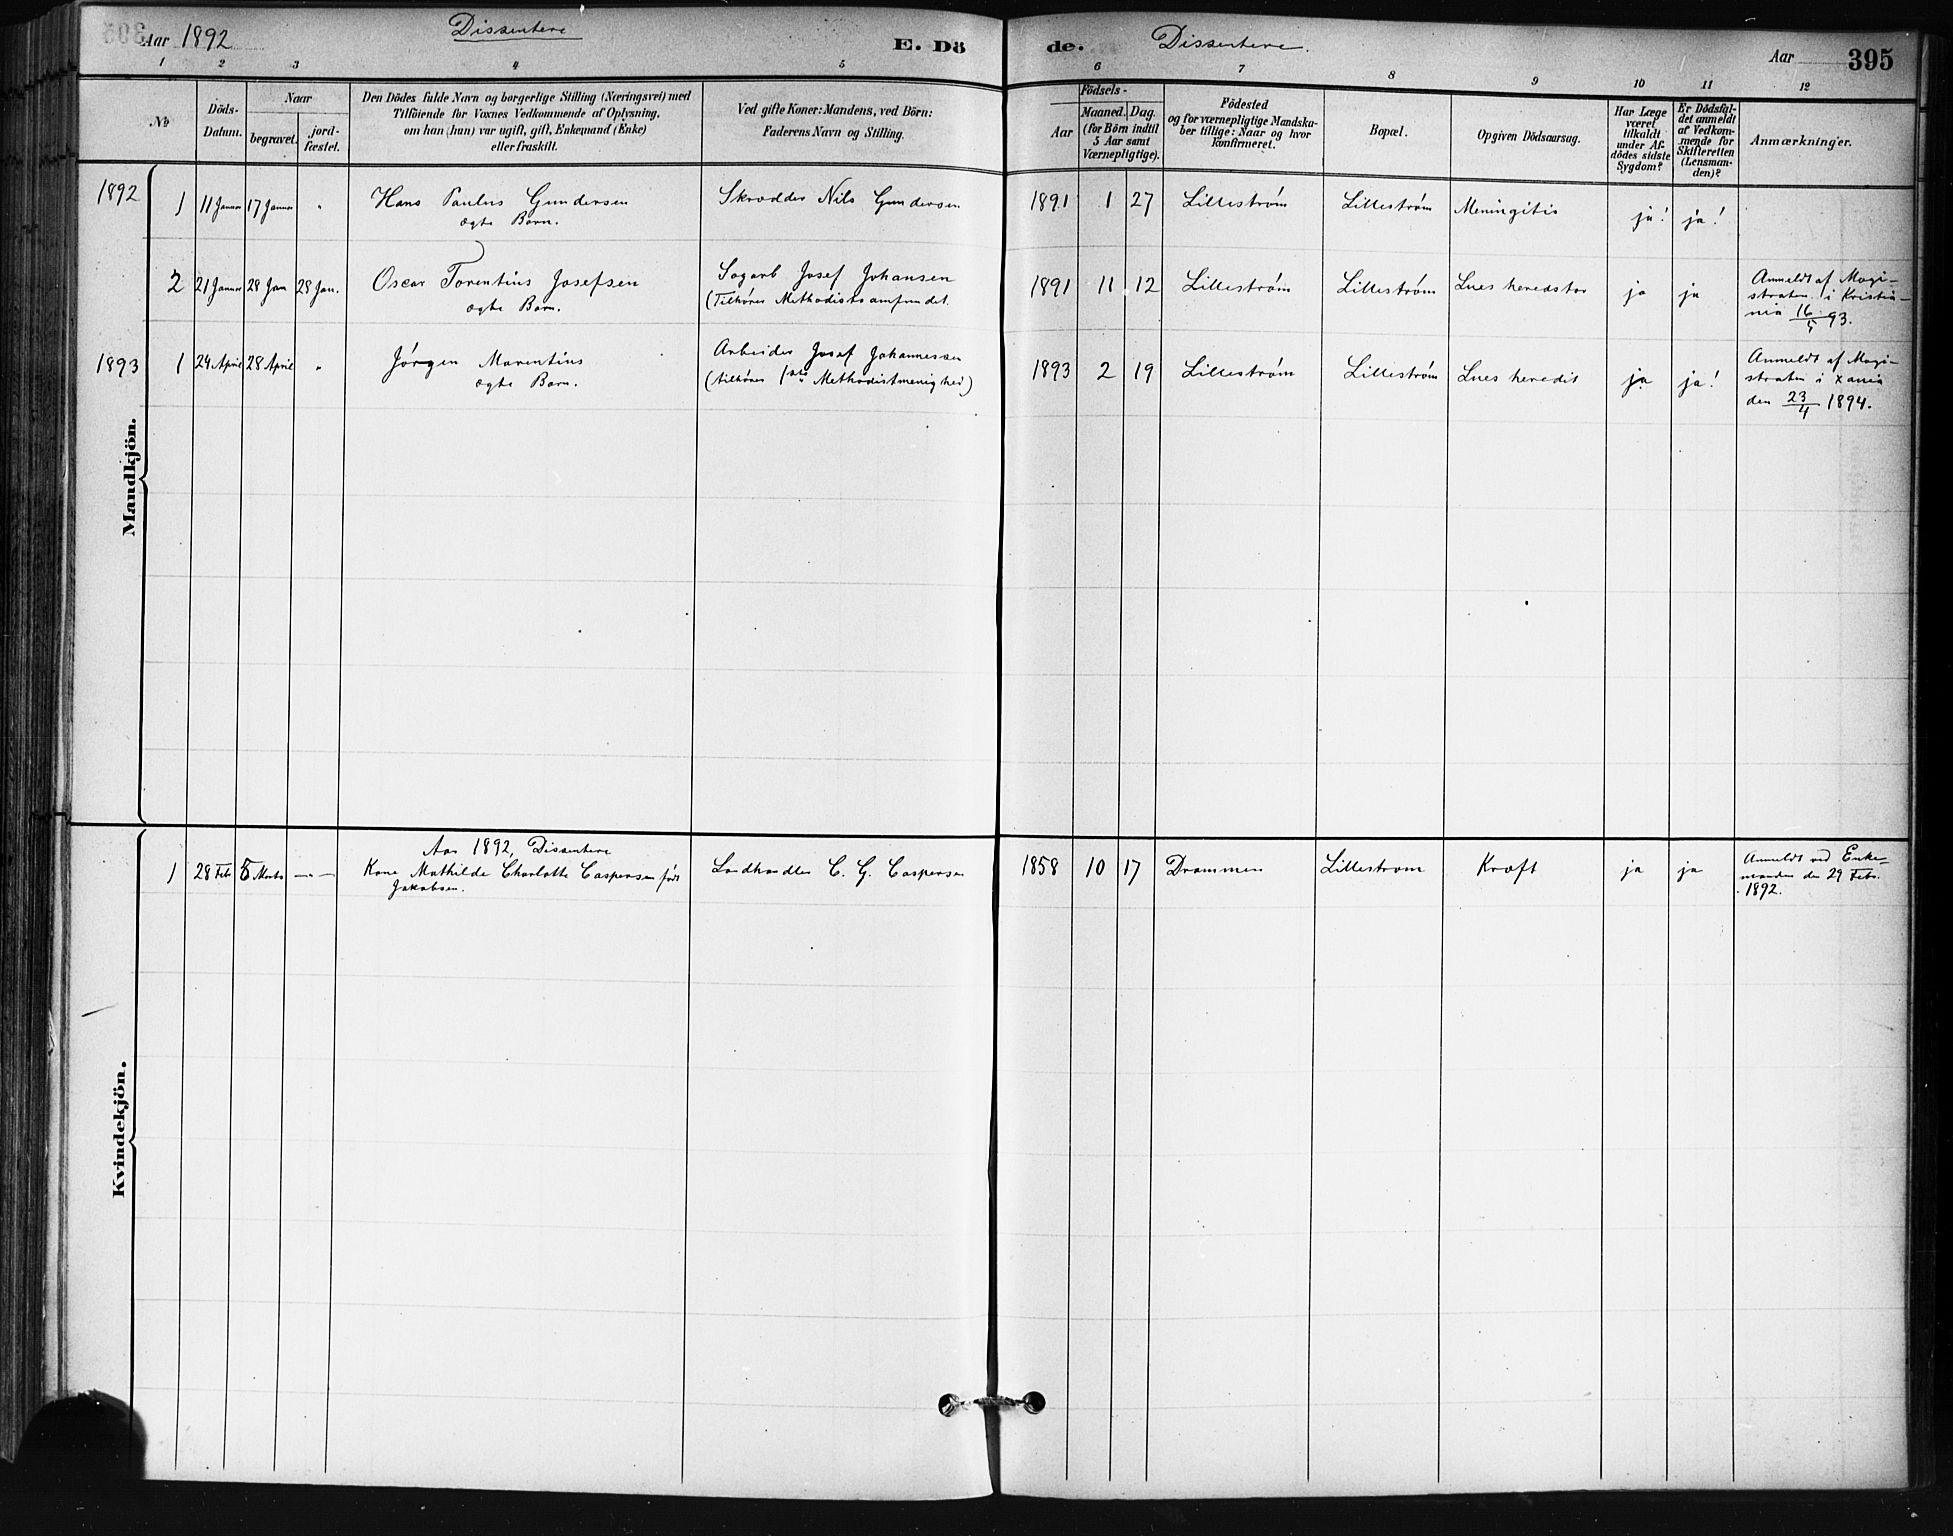 Aar 1892
Dissentere
E. Dö
de.
Dissentere.
Aar
395
1 2 3 4 5 6 7 8 9 10 11 12
No
Döds-
Datum.
Naar
begravet.
jord-
fæstet.
Den Dödes fulde Navn og borgerlige Stilling (Næringsvei) med
Tilföiende for Voxnes Vedkommende af Oplysning,
om han (hun) var ugift, gift, Enkemand (Enke)
eller fraskilt.
Ved gifte Koner: Mandens, ved Börn:
Faderens Navn og Stilling.
Födsels-
Aar
Maaned.
Dag.
(for Börn indtil
5 Aar samt
Værnepligtige).
Födested
og for værnepligtige Mandska-
ber tillige: Naar og hvor
konfirmeret.
Bopæl.
Opgiven Dödsaarsag.
Har Læge
været
tilkaldt
under Af-
dödes sidste
Sygdom?
Er Dödsfal-
det anmeldt
af Vedkom-
mende for
Skifteretten
(Lensman-
den)?
Anmærkninger.
Mandkjön.
1892
1 11 Januar 17 Januar " Hans Paulus Gundersen Skrædder Nils Gundersen 1891 1 27 Lillestrøm Lillestrøm Meningitis ja! ja!
ægte Barn.
2 21 Januar 28 Jan 28 Jan. Oscar Torentius Josefsen Sagarb Josef Johansen 1891 11 12 Lillestrøm Lillestrøm Lues ja ja Anmeldt af Magi-
ægte Barn. (Tilhører Methodistsamfundet. straten i Kristia-
nia 16/5 93.
1893
1 24 April 28 April " Jørgen Marentius Arbeider Josef Johannessen 1893 2 19 Lillestrøm Lillestrøm Lues heredit ja ja! Anmeldt af Magi-
ægte Barn. (tilhører 1ste Methodistmenighed) straten i Xania
den 23/4 1894.
Kvindekjön.
Aar 1892, Dissentere
1 28 Febr 5 Marts — Kone Mathilde Charlotte Caspersen født Landhandler C. G. Caspersen 1858 10 17 Drammen Lillestrøm Kræft ja ja Anmeldt ved Enke-
Jakobsen. manden den 29 Febr.
1892.